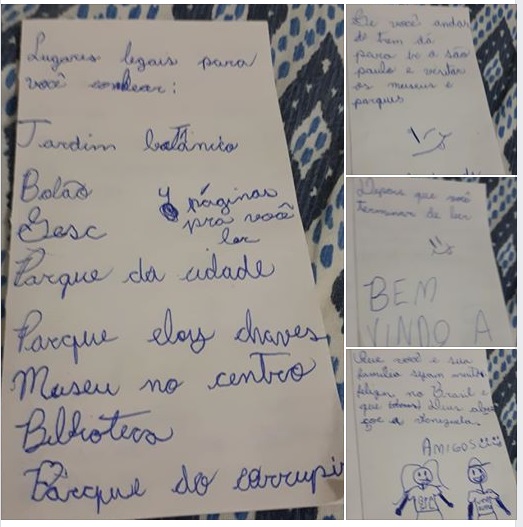 Lugares legais para
você conhecer:
Jardim botânico
Bolão
Sesc
4 páginas
pra você
ler
Parque da cidade
Parque eloy chaves
Museu no centro
Biblioteca
Parque do corrupi
Se você andar
de trem dá
para ir a são
paulo e visitar
os museus e
parques
Depois que você
terminar de ler
BEM
VINDO A
Que você e sua
família sejam muito
felizes no Brasil e
que Deus aben
çoe a Venezuela.
AMIGOS